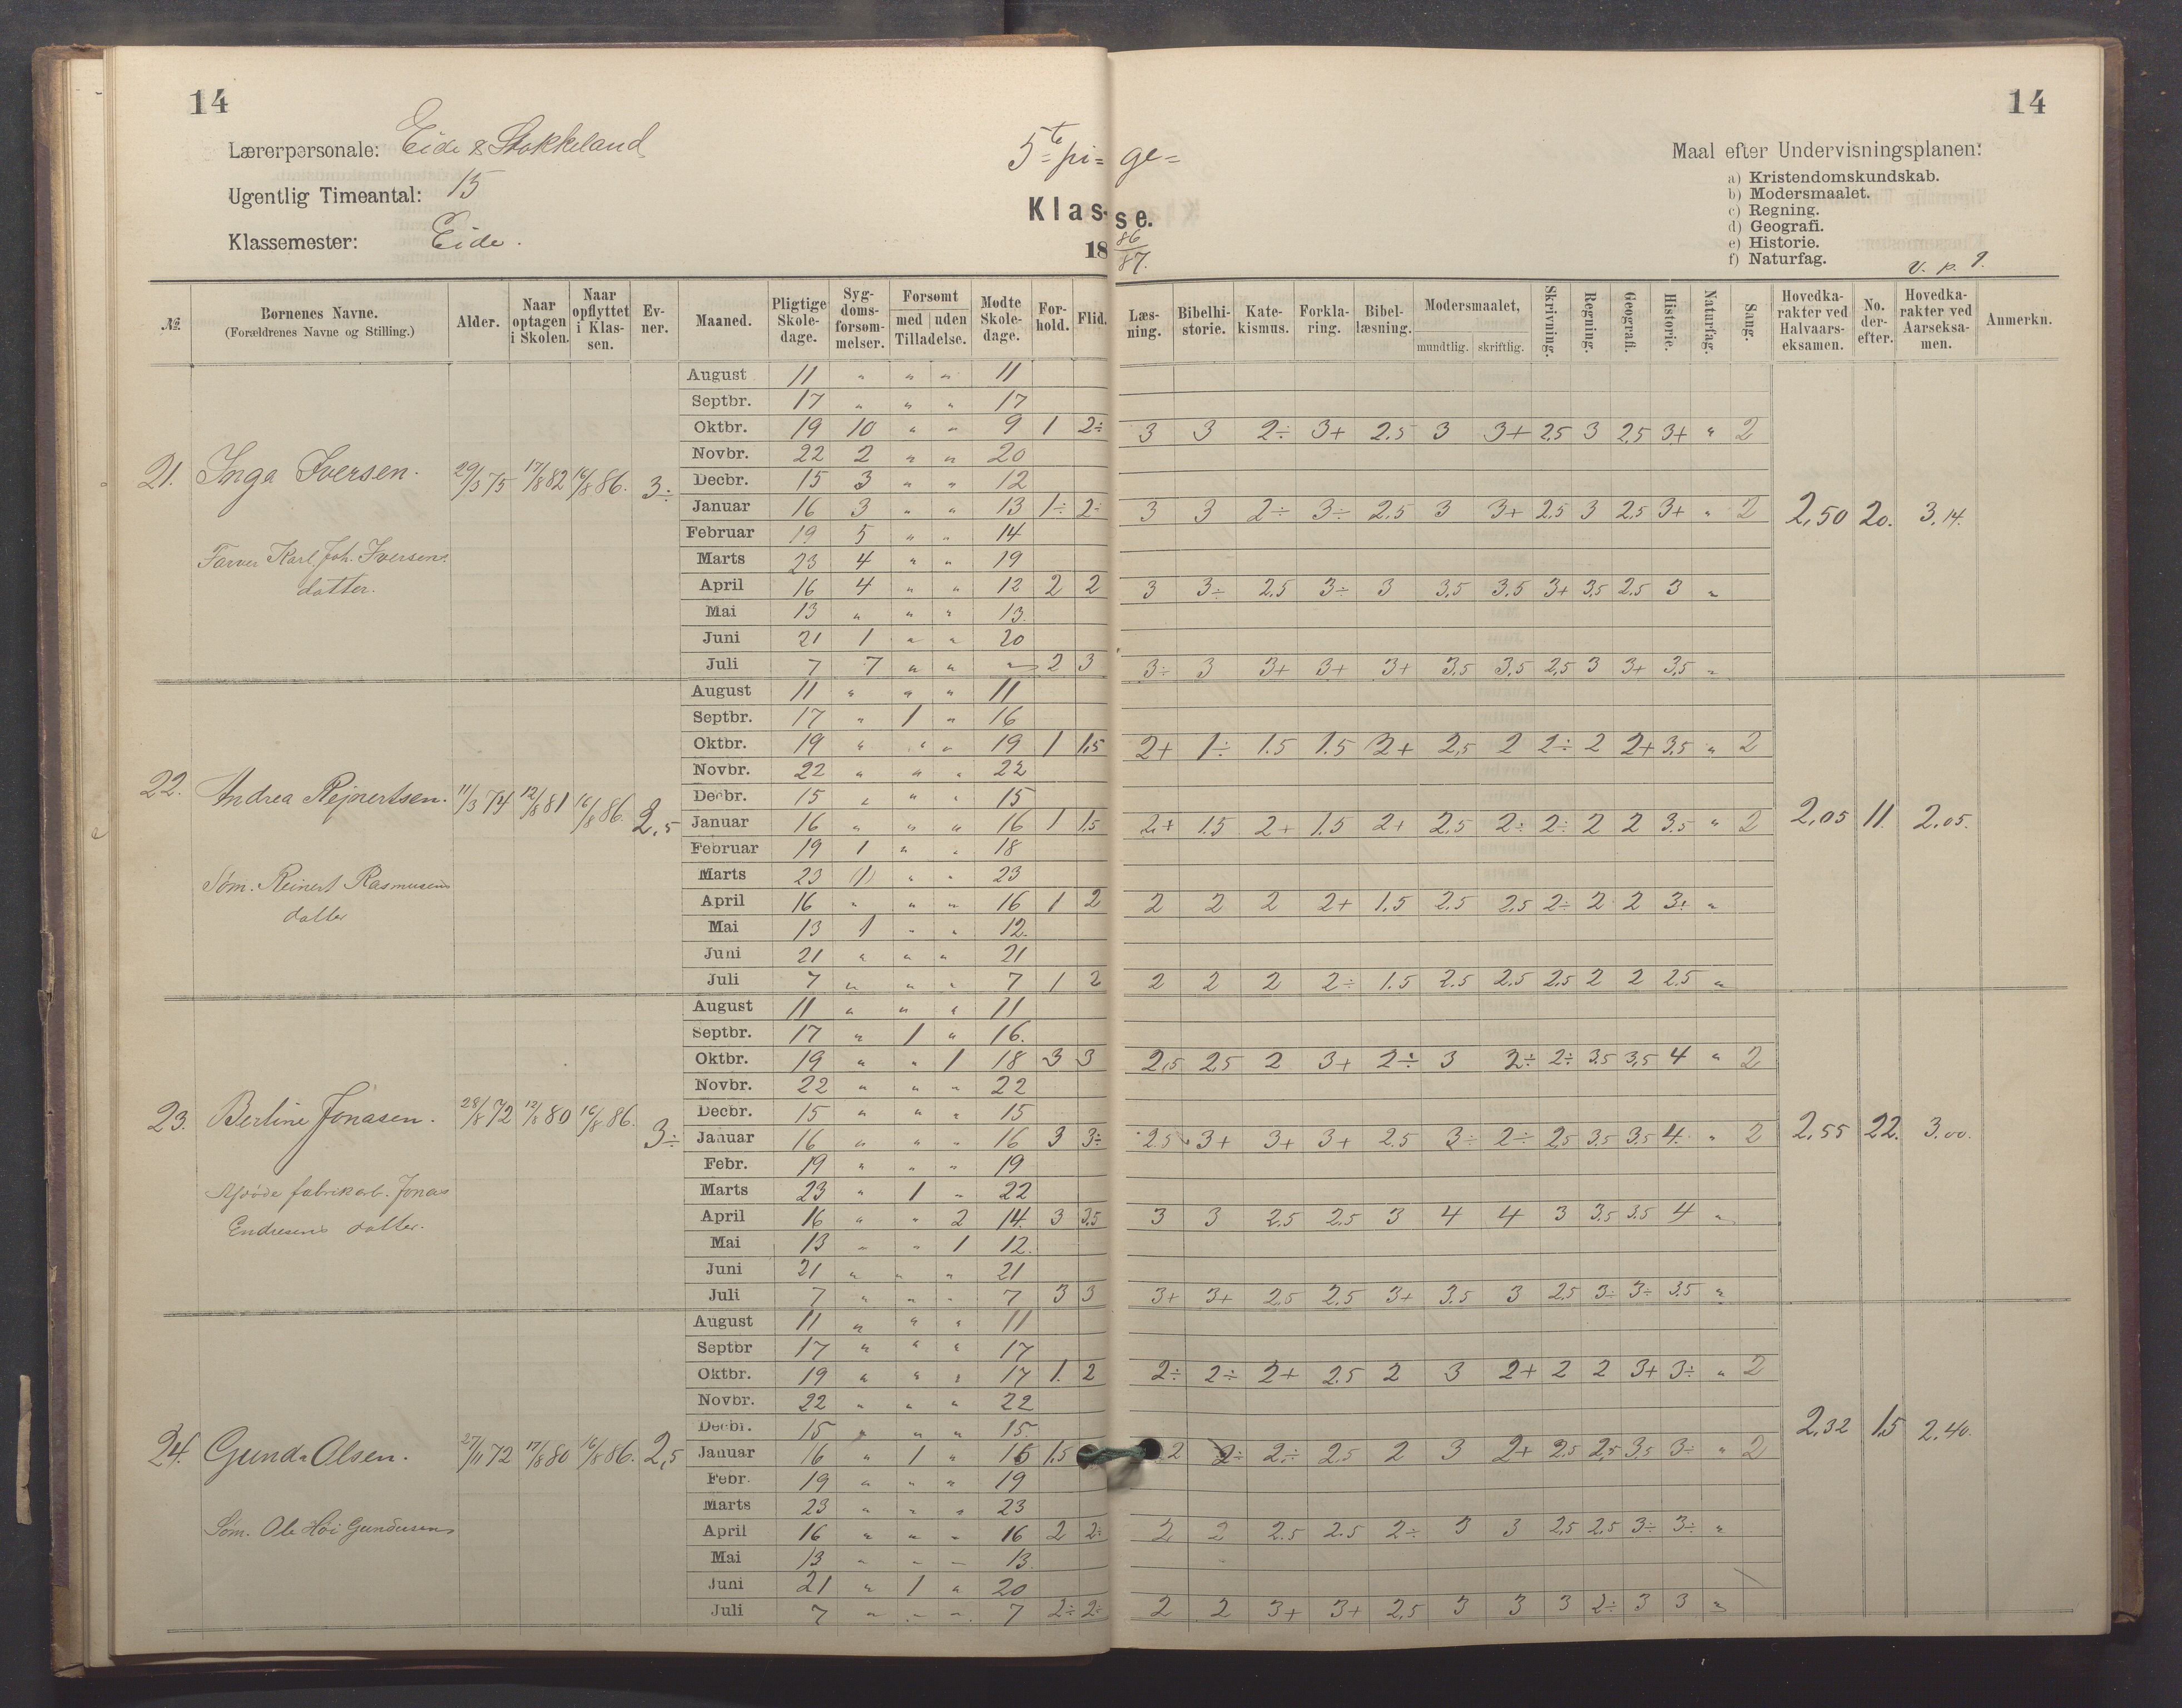 14
14
Lærerpersonale: Eide & Stokkeland
5te pi= ge=
Maal efter Undervisningsplanen:
a) Kristendomskundskab.
b) Modersmaalet.
c) Regning.
d) Geografi.
e) Historie.
f) Naturfag.
Ugentlig Timeantal: 15
Klasse.
Klassemester: Eide.
18 86/87.
№ Børnenes Navne. (Forældrenes Navne og Stilling.) Alder. Naar optagen i Skolen. Naar opflyttet i Klassen. Evner. Maaned. Pligtige Skoledage. Sygdomsforsømmelser. Forsømt med uden Tilladelse. Mødte Skoledage. Forhold. Flid. Læsning. Bibelhistorie. Katekismus. Forklaring. Bibellæsning. Modersmaalet, mundtlig. skriftlig. Skrivning. Regning. Geografi. Historie. Naturfag. Sang. Hovedkarakter ved Halvaarseksamen. No. derefter. Hovedkarakter ved Aarseksamen. Anmerkn.
21. Inga Iversen. 29/5 75 17/8 82 16/8 86. 3÷
Farver Karl Joh. Iversens
datter.
August 11 " " " 11
Septbr. 17 " " " 17
Oktbr. 19 10 " " 9 1 2÷ 3 3 2÷ 3+ 2.5 3 3+ 2.5 3 2.5 3+ " 2
Novbr. 22 2 " " 20
Decbr. 15 3 " " 12
Januar 16 3 " " 13 1÷ 2÷ 3 3 2÷ 3÷ 2.5 3 3+ 2.5 3 2.5 3+ " 2 2,50 20. 3.14.
Februar 19 5 " " 14
Marts 23 4 " " 19
April 16 4 " " 12 2 2 3 3÷ 2.5 3÷ 3 3,5 3.5 3+ 3.5 2.5 3 "
Mai 13 " " " 13.
Juni 21 1 " " 20
Juli 7 7 " " " 2 3 3÷ 3 3+ 3+ 3+ 3.5 3.5 2,5 3 3+ 3,5 "
22. Andrea Rejnertsen. 11/3 74 12/8 81 16/8 86. 2,5
Søm. Reinert Rasmusens
datter
August 11 " " " 11
Septbr. 17 " 1 " 16
Oktbr. 19 " " " 19 1 1,5 2+ 1÷ 1.5 1.5 2+ 2,5 2 2÷ 2 2+ 3.5 " 2
Novbr. 22 " " " 22
Decbr. 15 " " " 15
Januar 16 " " " 16 1 1.5 2+ 1.5 2+ 1.5 2+ 2.5 2÷ 2÷ 2 2 3.5 " 2 2,05 11. 2.05.
Februar 19 1 " " 18
Marts 23 " " 23
April 16 " " " 16 1 2 2 2 2 2+ 1.5 2.5 2.5 2÷ 2 2 3÷ "
Mai 13 1 " " 12.
Juni 21 " " " 21
Juli 7 " " " 7 1 2 2 2 2 2÷ 1.5 2.5 2.5 2,5 2 2 2.5 "
23. Bertine Jonasen. 28/8 72 12/8 80 16/8 86. 3÷
Afdøde fabrikarb. Jonas
Endresens datter.
August 11 " " " 11
Septbr. 17 " 1 " 16.
Oktbr. 19 " " 1 18 3 3 2,5 2,5 2 3+ 2÷ 3 2÷ 2÷ 3.5 3,5 4 " 2
Novbr. 22 " " " 22
Decbr. 15 " " " 15
Januar 16 " " " 16 3 3÷ 2.5 3+ 3+ 3+ 2.5 3÷ 2÷ 2,5 3.5 3.5 4. " 2 2,55 22. 3.00.
Febr. 19 " " " 19
Marts 23 " 1 " 22
April 16 " " 2 14. 3 3.5 3 3 2.5 2.5 3 4 4 3 3.5 3.5 4 "
Mai 13 " " 1 12.
Juni 21 " " " 21
Juli 7 " " " 7 3 3 3+ 3+ 2,5 2,5 3+ 3.5 3 2.5 3÷ 3÷ 3.5 "
24. Gunda Olsen. 27/11 72 17/8 80 16/8 86. 2,5
Søm. Ole Høi Gundersens
August 11 " " " 11
Septbr 17 " " " 17
Oktbr. 19 " " " 17 1. 2 2÷ 2÷ 2+ 2.5 2 3 2+ 2 2 3+ 3÷ " 2
Novbr. 22 " " " 22
Decbr. 15 " " " 15.
Januar 16 " 1 " 15 1,5 2 2÷ 2÷ 2.5 2 3 2+ 2.5 2,5 3,5 3÷ " 2 2,32 15 2.40.
Febr. 19 " " " 19
Marts 23 " " " 23
April 16 " " " 16 2 2÷ 2 2 2.5 2.5 2÷ 3 3 2,5 2,5 3÷ 3÷ "
Mai 13 " " " 13.
Juni 21 " 1 " 20
Juli 7 " " " 7 2÷ 2÷ 2 2 3+ 3+ 2,5 3 3 3 2÷ 3 3 "